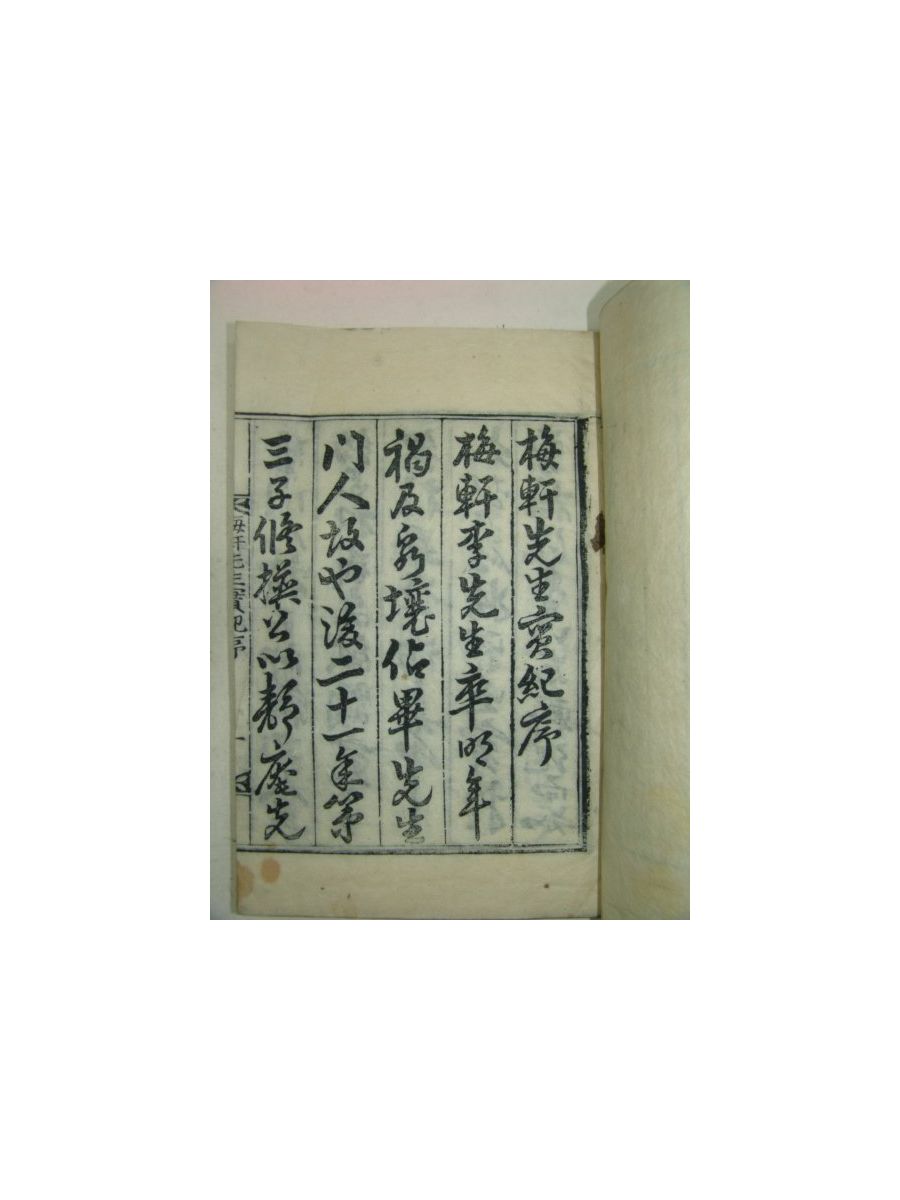 梅軒先生實紀序
梅軒李先生卒明年
禍及泉壤佔畢先生
門人故也後二十一年第
三子修撰公以靜庵先
梅軒先生實紀序 一